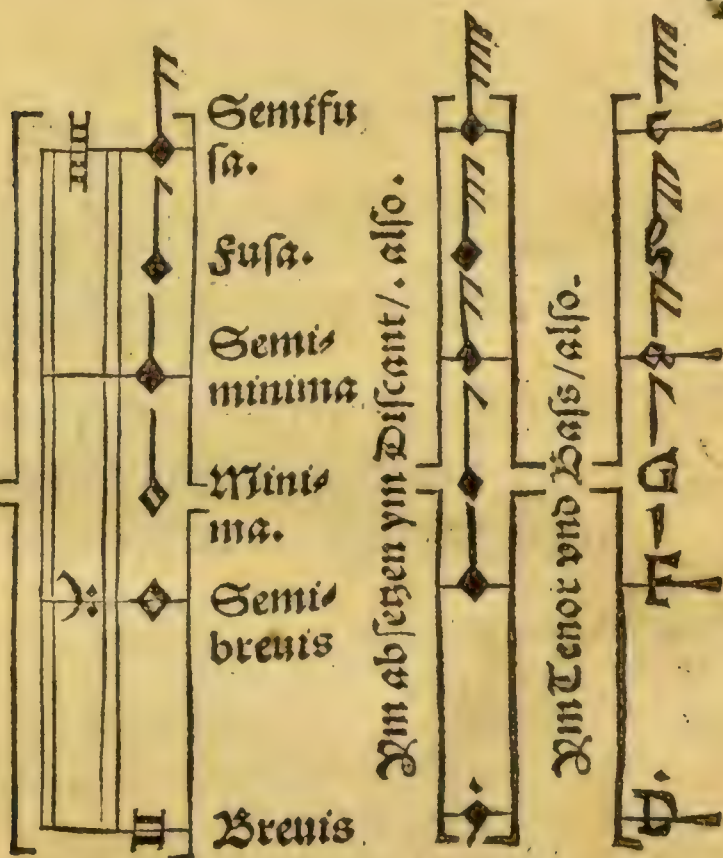 Semifu
sa.
Fusa.
Semi⸗
minima
Mini⸗
ma.
Semi⸗
breuis
Breuis
Ym absetzen ym Discant/. also.
Ym Tenor vnd Bass/also.